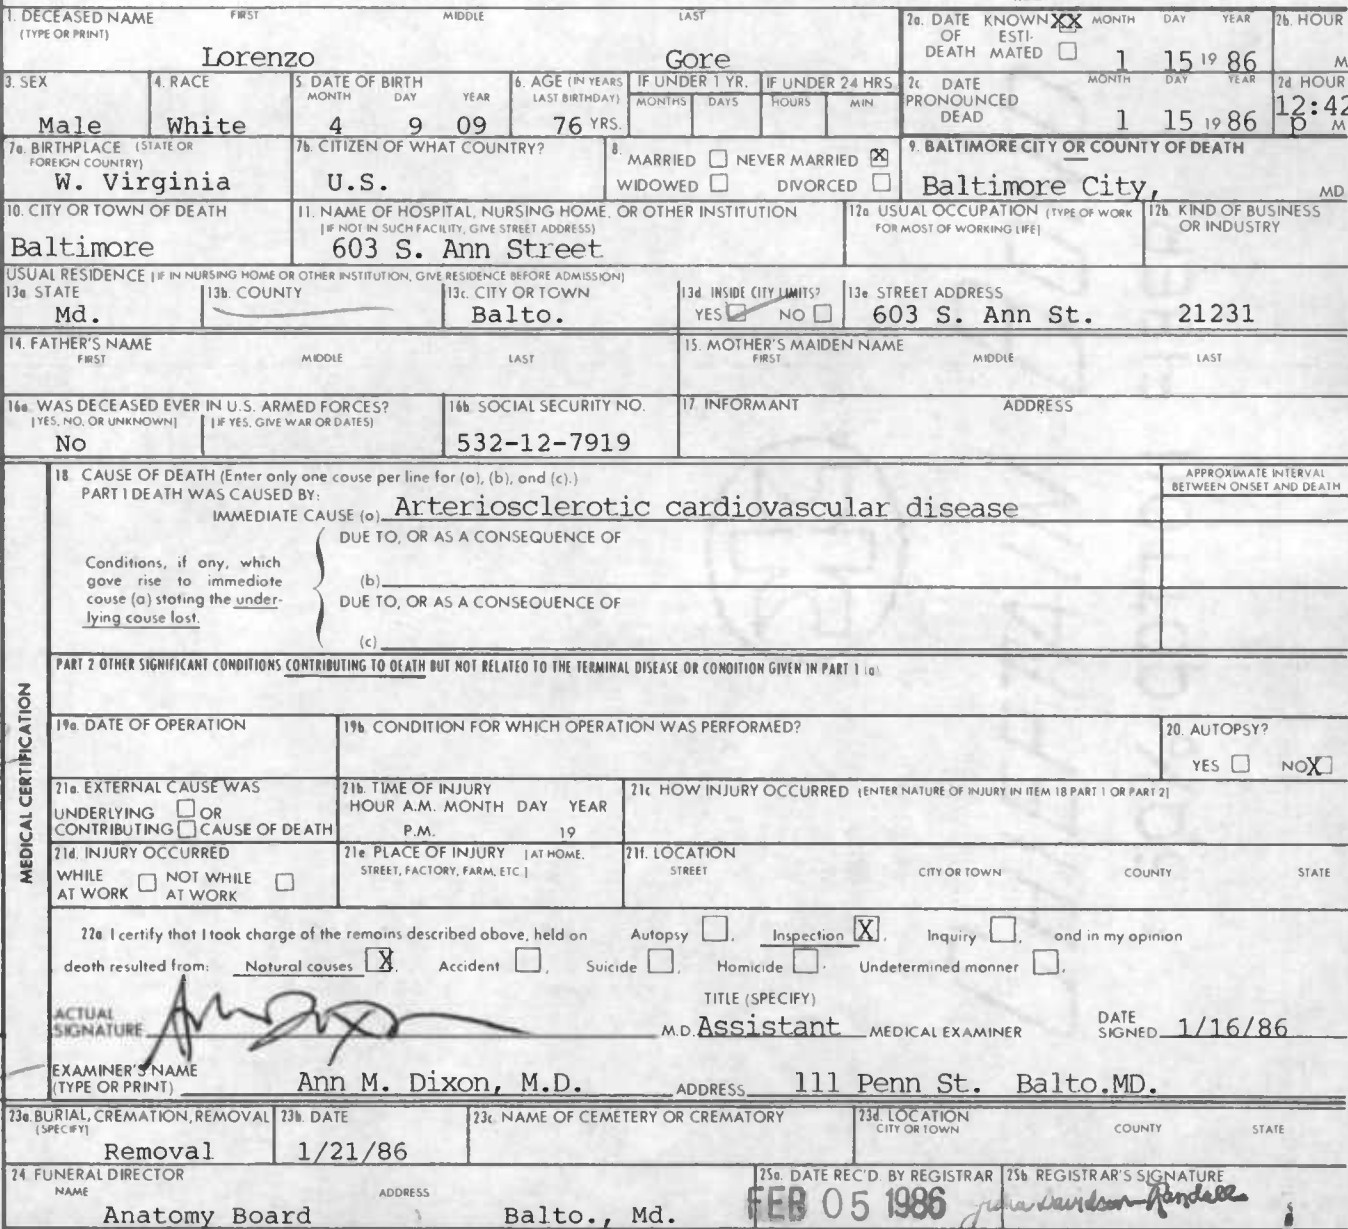 1. DECEASED NAME FIRST MIDDLE LAST
(TYPE OR PRINT)
Lorenzo Gore
2a. DATE KNOWN XX MONTH DAY YEAR
OF ESTI-
DEATH MATED 1 15 19 86
2b. HOUR
M
3. SEX
Male
4. RACE
White
5 DATE OF BIRTH
MONTH DAY YEAR
4 9 09
6. AGE (IN YEARS
LAST BIRTHDAY)
76 YRS.
IF UNDER 1 YR.
MONTHS DAYS
IF UNDER 24 HRS
HOURS MIN
2c DATE MONTH DAY YEAR
PRONOUNCED
DEAD 1 15 19 86
2d HOUR
12:42
p M
7a. BIRTHPLACE (STATE OR
FOREIGN COUNTRY)
W. Virginia
7b. CITIZEN OF WHAT COUNTRY?
U.S.
8.
MARRIED NEVER MARRIED X
WIDOWED DIVORCED
9. BALTIMORE CITY OR COUNTY OF DEATH
Baltimore City, MD
10. CITY OR TOWN OF DEATH
Baltimore
11. NAME OF HOSPITAL, NURSING HOME, OR OTHER INSTITUTION
(IF NOT IN SUCH FACILITY, GIVE STREET ADDRESS)
603 S. Ann Street
12a USUAL OCCUPATION (TYPE OF WORK
FOR MOST OF WORKING LIFE)
12b. KIND OF BUSINESS
OR INDUSTRY
USUAL RESIDENCE (IF IN NURSING HOME OR OTHER INSTITUTION, GIVE RESIDENCE BEFORE ADMISSION)
13a STATE
Md.
13b. COUNTY
13c. CITY OR TOWN
Balto.
13d. INSIDE CITY LIMITS?
YES NO
13e STREET ADDRESS
603 S. Ann St. 21231
14. FATHER'S NAME
FIRST MIDDLE LAST
15. MOTHER'S MAIDEN NAME
FIRST MIDDLE LAST
16a. WAS DECEASED EVER IN U.S. ARMED FORCES?
(YES, NO, OR UNKNOWN) (IF YES, GIVE WAR OR DATES)
No
16b. SOCIAL SECURITY NO.
532-12-7919
17. INFORMANT ADDRESS
MEDICAL CERTIFICATION
18 CAUSE OF DEATH (Enter only one cause per line for (a), (b), and (c).)
PART I DEATH WAS CAUSED BY:
IMMEDIATE CAUSE (a) Arteriosclerotic cardiovascular disease
APPROXIMATE INTERVAL
BETWEEN ONSET AND DEATH
DUE TO, OR AS A CONSEQUENCE OF
Conditions, if any, which
gave rise to immediate
cause (a) stating the under-
lying cause last.
(b)
DUE TO, OR AS A CONSEQUENCE OF
(c)
PART 2 OTHER SIGNIFICANT CONDITIONS CONTRIBUTING TO DEATH BUT NOT RELATED TO THE TERMINAL DISEASE OR CONDITION GIVEN IN PART 1 (a)
19a. DATE OF OPERATION
19b. CONDITION FOR WHICH OPERATION WAS PERFORMED?
20. AUTOPSY?
YES NO X
21a. EXTERNAL CAUSE WAS
UNDERLYING OR
CONTRIBUTING CAUSE OF DEATH
21b. TIME OF INJURY
HOUR A.M. MONTH DAY YEAR
P.M. 19
21c HOW INJURY OCCURRED (ENTER NATURE OF INJURY IN ITEM 18 PART 1 OR PART 2)
21d. INJURY OCCURRED
WHILE NOT WHILE
AT WORK AT WORK
21e PLACE OF INJURY (AT HOME,
STREET, FACTORY, FARM, ETC)
21f. LOCATION
STREET CITY OR TOWN COUNTY STATE
22a I certify that I took charge of the remains described above, held on Autopsy , Inspection X , Inquiry , and in my opinion
death resulted from: Natural causes X , Accident , Suicide , Homicide . Undetermined manner ,
ACTUAL
SIGNATURE
TITLE (SPECIFY)
M.D. Assistant MEDICAL EXAMINER
DATE
SIGNED 1/16/86
EXAMINER'S NAME
(TYPE OR PRINT) Ann M. Dixon, M.D. ADDRESS 111 Penn St. Balto.MD.
23a. BURIAL, CREMATION, REMOVAL
(SPECIFY)
Removal
23b. DATE
1/21/86
23c. NAME OF CEMETERY OR CREMATORY
23d. LOCATION
CITY OR TOWN COUNTY STATE
24 FUNERAL DIRECTOR
NAME ADDRESS
Anatomy Board Balto., Md.
25a. DATE REC'D. BY REGISTRAR
FEB 05 1986
25b. REGISTRAR'S SIGNATURE
Julia Davidson-Randall